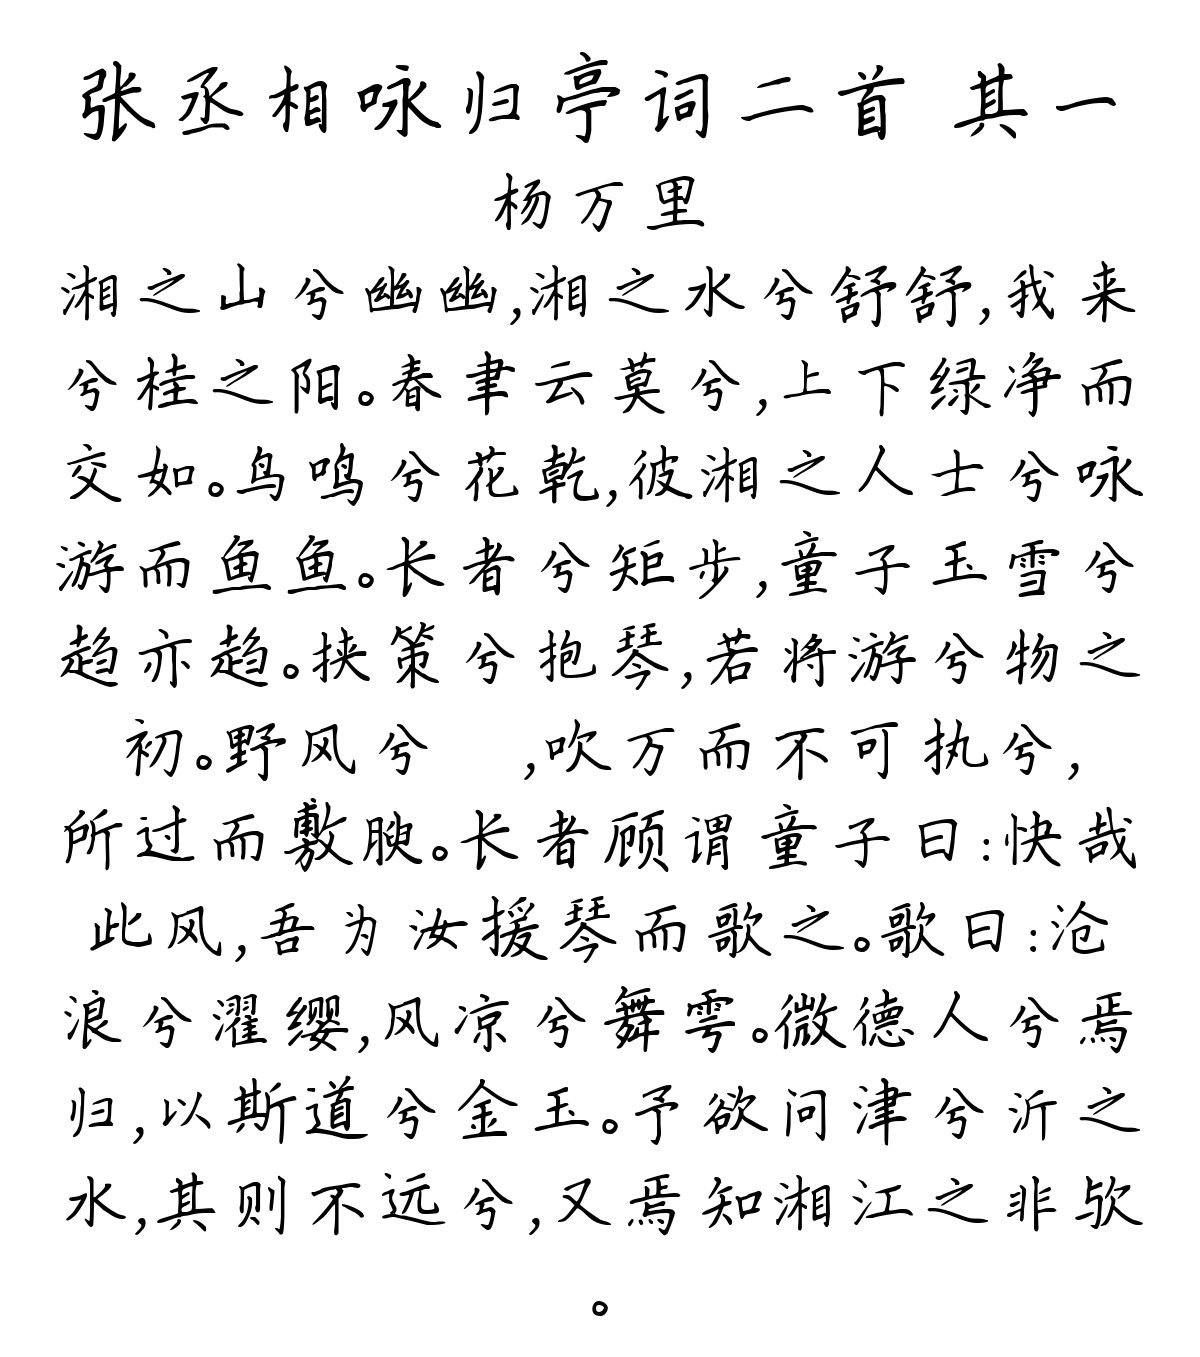 张丞相咏归亭词二首 其一
杨万里
湘之山兮幽幽,湘之水兮舒舒,我来
兮桂之阳。春聿云莫兮,上下绿净而
交如。鸟鸣兮花乾,彼湘之人士兮咏
游而鱼鱼。长者兮矩步,童子玉雪兮
趋亦趋。挟策兮抱琴,若将游兮物之
初。野风兮 ,吹万而不可执兮,
所过而敷腴。长者顾谓童子曰:快哉
此风,吾为汝援琴而歌之。歌曰:沧
浪兮濯缨,风凉兮舞雩。微德人兮焉
归,以斯道兮金玉。予欲问津兮沂之
水,其则不远兮,又焉知湘江之非欤
。